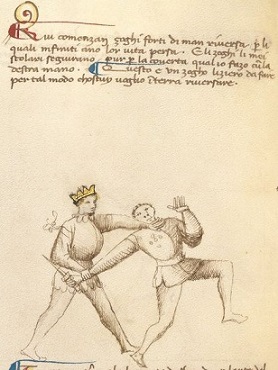 Qui comenzan zoghi forti di man riversa. p li
quali infiniti ano lor vita persa. E li zoghi li mei
scolari seguirano. pur p la coverta qual io fazo cū la
destra mano. Questo e un zogho liziero da fare
per tal modo chostuy voglio in terra riversare.